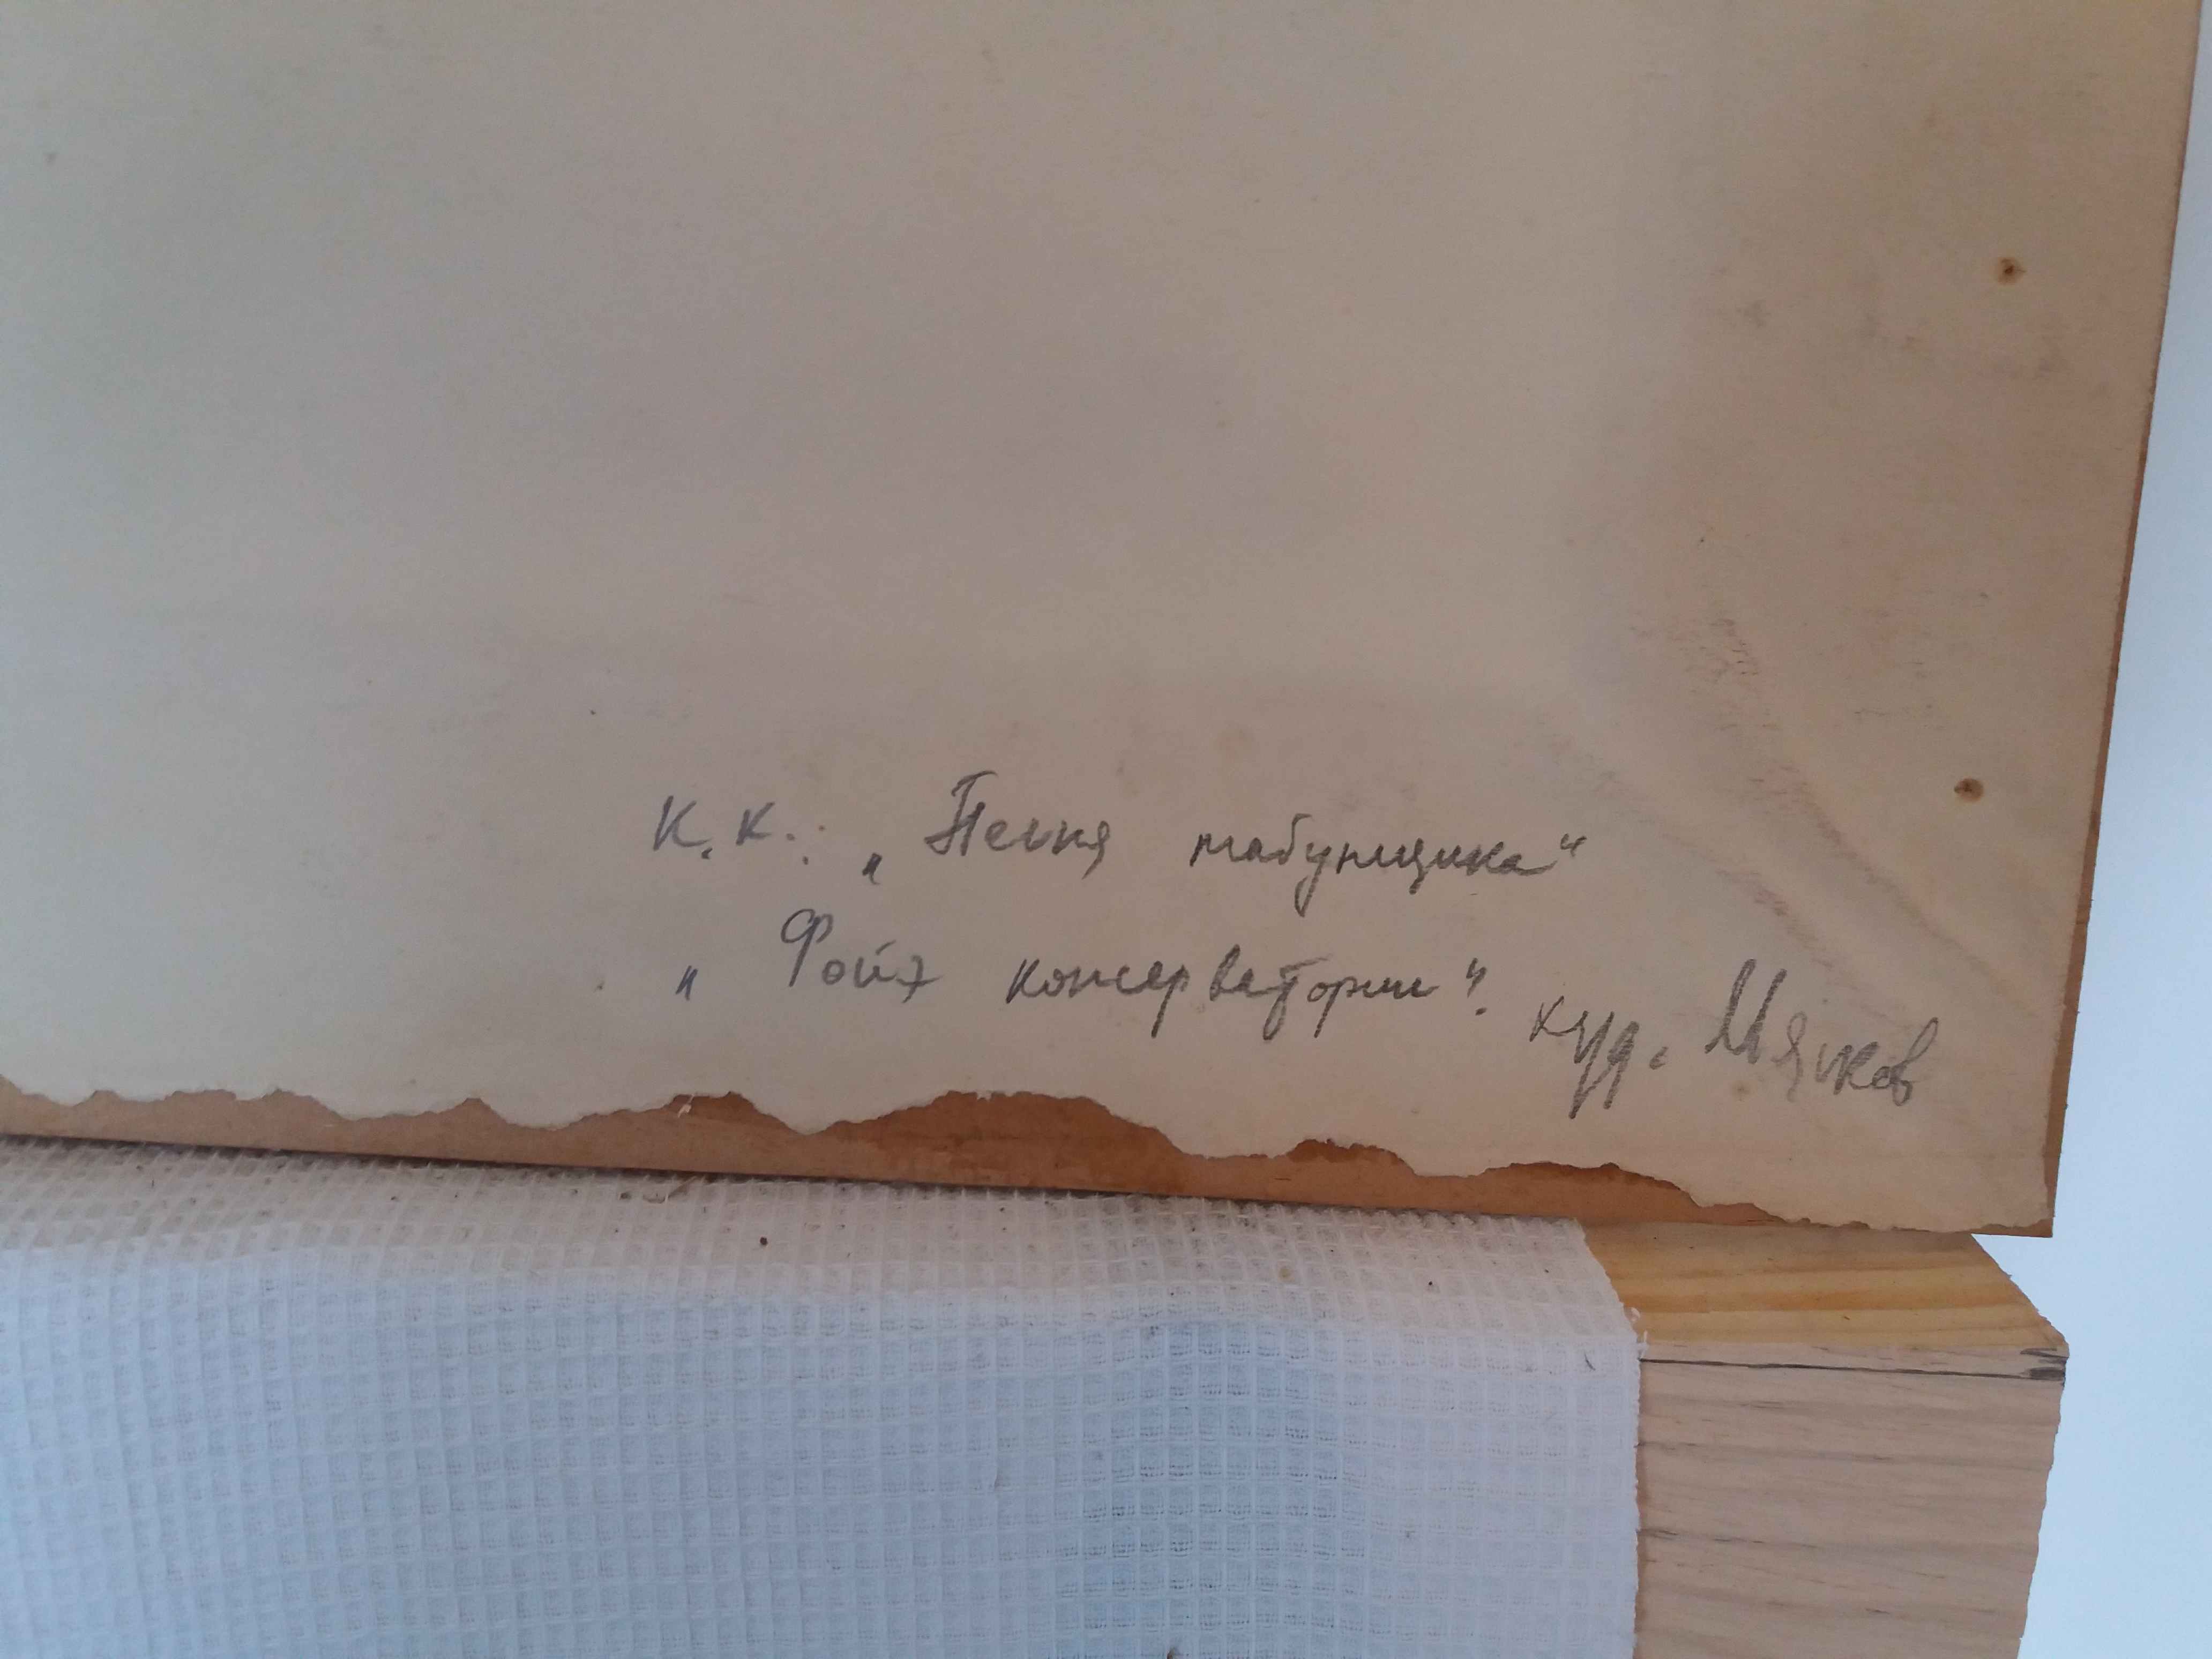 К.К. „Песня табунщика“
„Фойэ консерватории“. худ. Мягков